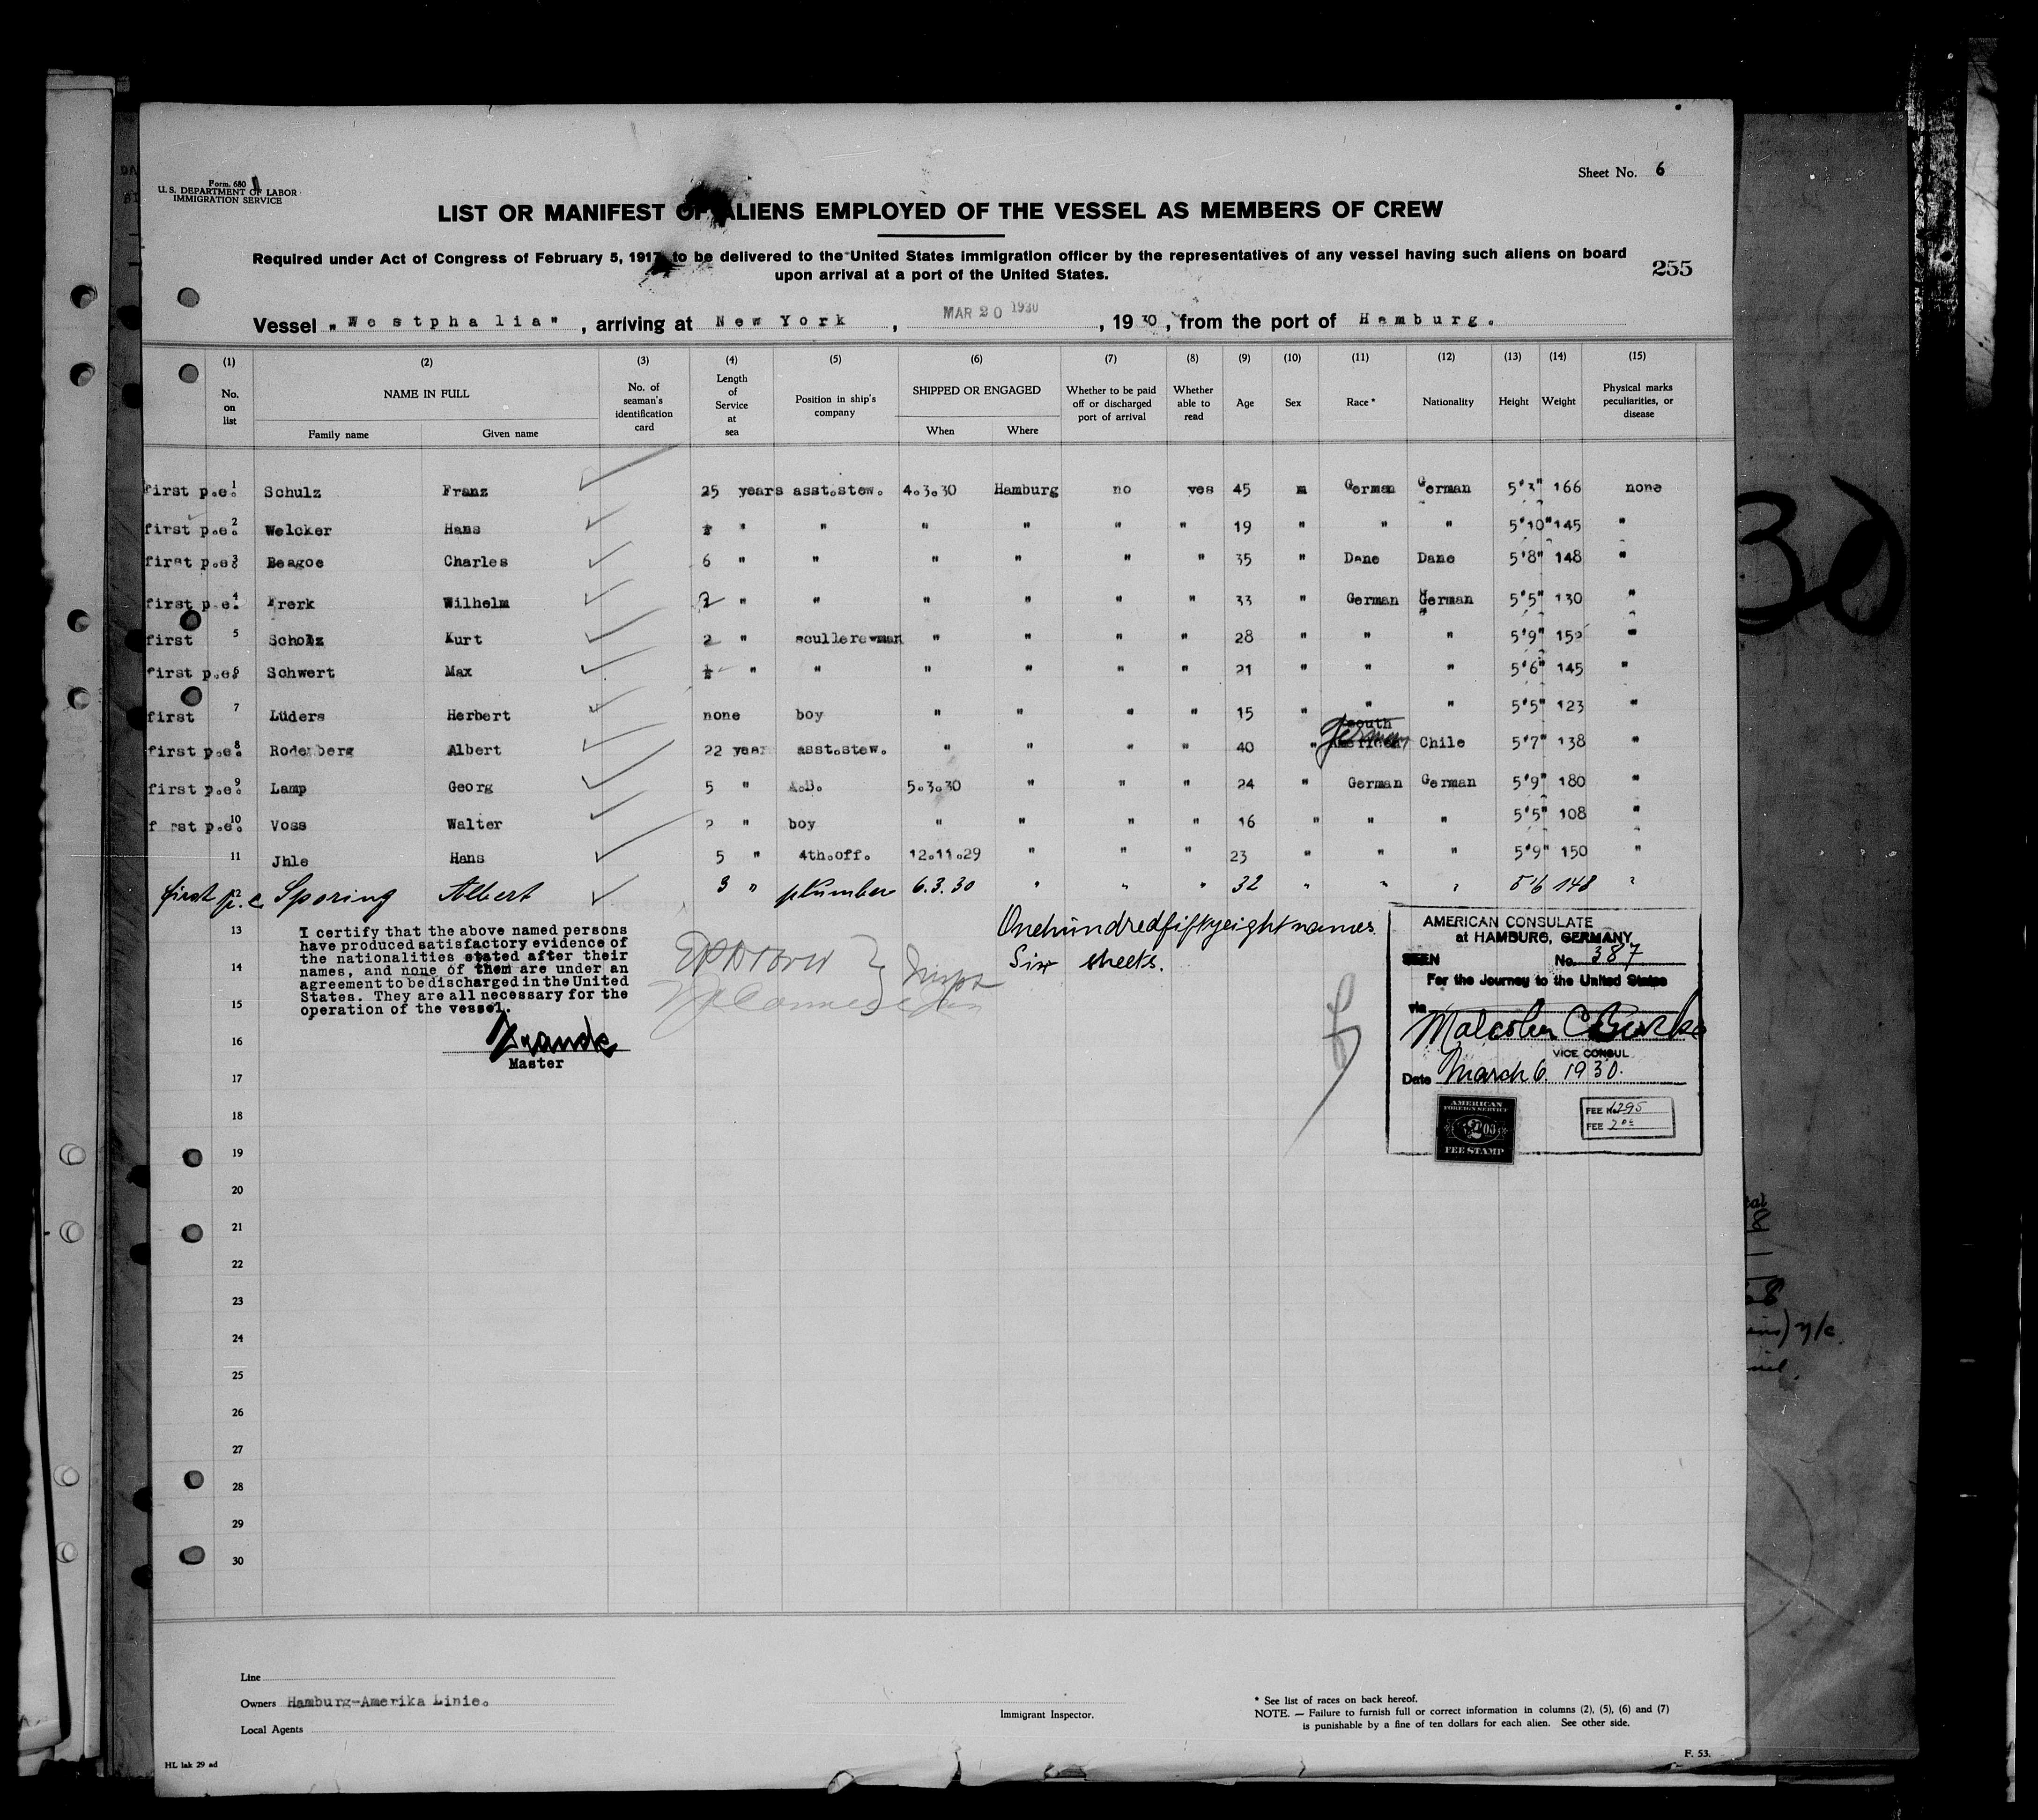 Form. 680
U. S. DEPARTMENT OF LABOR
IMMIGRATION SERVICE
Sheet No. 6
LIST OR MANIFEST OF ALIENS EMPLOYED OF THE VESSEL AS MEMBERS OF CREW
Required under Act of Congress of February 5, 1917, to be delivered to the United States immigration officer by the representatives of any vessel having such aliens on board
upon arrival at a port of the United States.
255
Vessel „Westphalia", arriving at New York, MAR 20 1930, 1930, from the port of Hamburg.
(1) (2) (3) (4) (5) (6) (7) (8) (9) (10) (11) (12) (13) (14) (15)
No. on list NAME IN FULL No. of seaman's identification card Length of Service at sea Position in ship's company SHIPPED OR ENGAGED Whether to be paid off or discharged port of arrival Whether able to read Age Sex Race * Nationality Height Weight Physical marks peculiarities, or disease
Family name Given name When Where
first p.e. 1 Schulz Franz 25 years asst.stew. 4.3.30 Hamburg no yes 45 m German German 5'3" 166 none
first p.e. 2 Welcker Hans " " " " " " 19 " " " 5'10" 145 "
first p.e. 3 Beagoe Charles 6 " " " " " " 35 " Dane Dane 5'8" 148 "
first p.e. 4 Frerk Wilhelm 2 " " " " " " 33 " German German 5'5" 130 "
first 5 Scholz Kurt 2 " scullereman " " " " 28 " " " 5'9" 152 "
first p.e. 6 Schwert Max " " " " " " 21 " " " 5'6" 145 "
first 7 Lüders Herbert none boy " " " " 15 " " " 5'5" 123 "
first p.e. 8 Rodenberg Albert 22 year asst.stew. " " " " 40 " South America German Chile 5'7" 138 "
first p.e. 9 Lamp Georg 5 " A.B. 5.3.30 " " " 24 " German German 5'9" 180 "
first p.e. 10 Voss Walter 2 " boy " " " " 16 " " " 5'5" 108 "
11 Jhle Hans 5 " 4th.off. 12.11.29 " " " 23 " " " 5'9" 150 "
first p.e. 12 Sporing Albert 3 " plumber 6.3.30 " " " 32 " " " 5'6 148 "
13
14
15
16
17
18
19
20
21
22
23
24
25
26
27
28
29
30
I certify that the above named persons
have produced satisfactory evidence of
the nationalities stated after their
names, and none of them are under an
agreement to be discharged in the United
States. They are all necessary for the
operation of the vessel.
Master
Onehundredfiftyeight names.
Six sheets.
AMERICAN CONSULATE
at HAMBURG, GERMANY
SEEN No. 387
For the Journey to the United States
via
Malcolm C Burke
VICE CONSUL
Date March 6. 1930.
AMERICAN
FOREIGN SERVICE
2 00
FEE STAMP
FEE No. 1295
FEE 2 00
Line
Owners Hamburg-Amerika Linie.
Local Agents
Immigrant Inspector.
* See list of races on back hereof.
NOTE. — Failure to furnish full or correct information in columns (2), (5), (6) and (7)
is punishable by a fine of ten dollars for each alien. See other side.
HL lak 29 ad
F. 53.